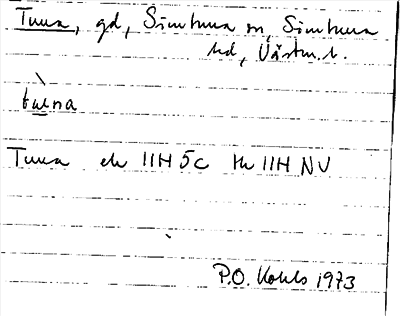 Tuna, gd, Simtuna sn, Simtuna
hd, Västm.l.
tuna
Tuna ek 11H 5c tk 11H NV
P.O. Kohls 1973